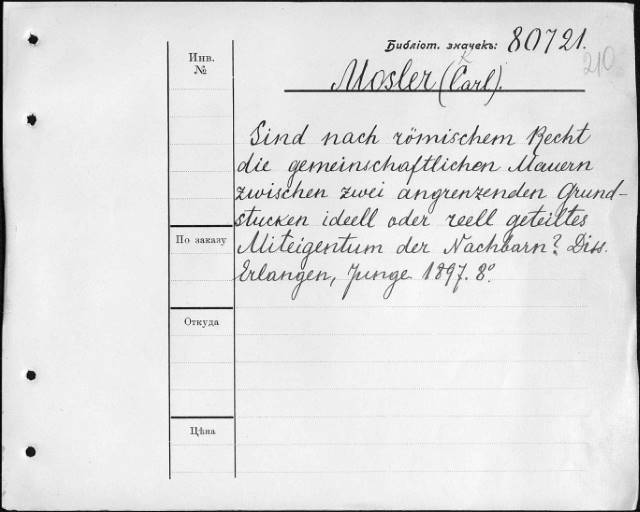 Библіот. значекъ: 80721.
210
K
Mosler (Carl).
Инв. №
Sind nach römischem Recht
die gemeinschaftlichen Mauern
zwischen zwei angrenzenden Grund-
stucken ideell oder reell geteiltes
Miteigentum der Nachbarn? Diss.
Erlangen, Junge 1897. 8°.
По заказу
Откуда
Цѣна